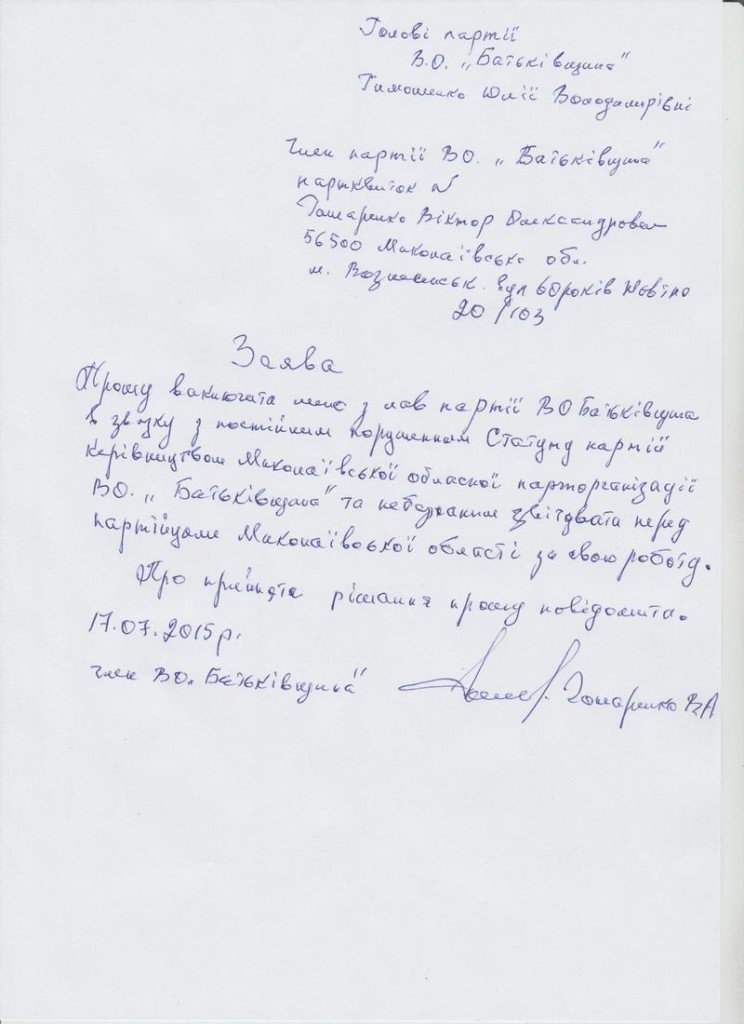 Голові партії
В.О. „Батьківщина"
Тимошенко Юлії Володимирівні
Член партії ВО. „Батьківщина"
партквиток N
Гонтаренко Віктор Олександрович
56500 Миколаївська обл.
м. Вознесенськ. вул 60 років Жовтня
20/103
Заява
Прошу виключити мене з лав партії ВО Батьківщина
в звязку з постійним порушенням Статуту партії
керівництвом Миколаївської обласної парторганізації
ВО. „Батьківщина" та небажанням звітувати перед
партійцями Миколаївської області за свою роботу.
Про прийняте рішення прошу повідомити.
17.07.2015р.
член ВО. Батьківщина"
ВА